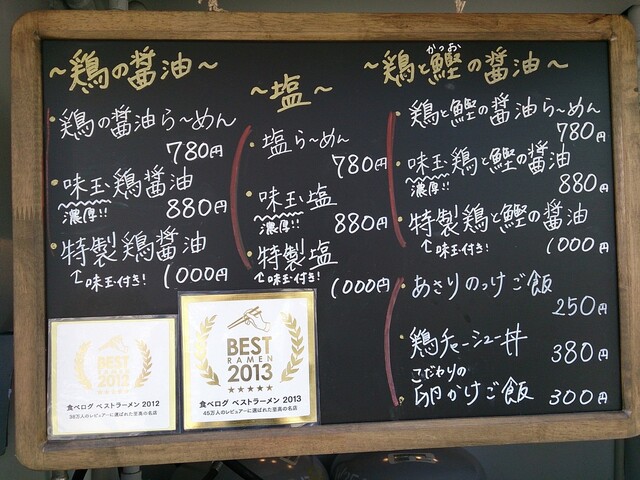 ～鶏の醤油～
鶏の醤油ら～めん
780円
味玉鶏醤油
濃厚!!
880円
特製鶏醤油
↑味玉付き!
1000円
～塩～
塩ら～めん
780円
味玉塩
濃厚!!
880円
特製塩
↑味玉付き!
1000円
かつお
～鶏と鰹の醤油～
鶏と鰹の醤油ら～めん
780円
味玉鶏と鰹の醤油
濃厚!!
880円
特製鶏と鰹の醤油
↑味玉付き!
1000円
あさりのっけご飯
250円
鶏チャーシュー丼
380円
こだわりの
卵かけご飯
300円
BEST
RAMEN
2012
食べログ ベストラーメン 2012
BEST
RAMEN
2013
★★★★★
食べログ ベストラーメン 2013
45万人のレビュアーに選ばれた至高の名店